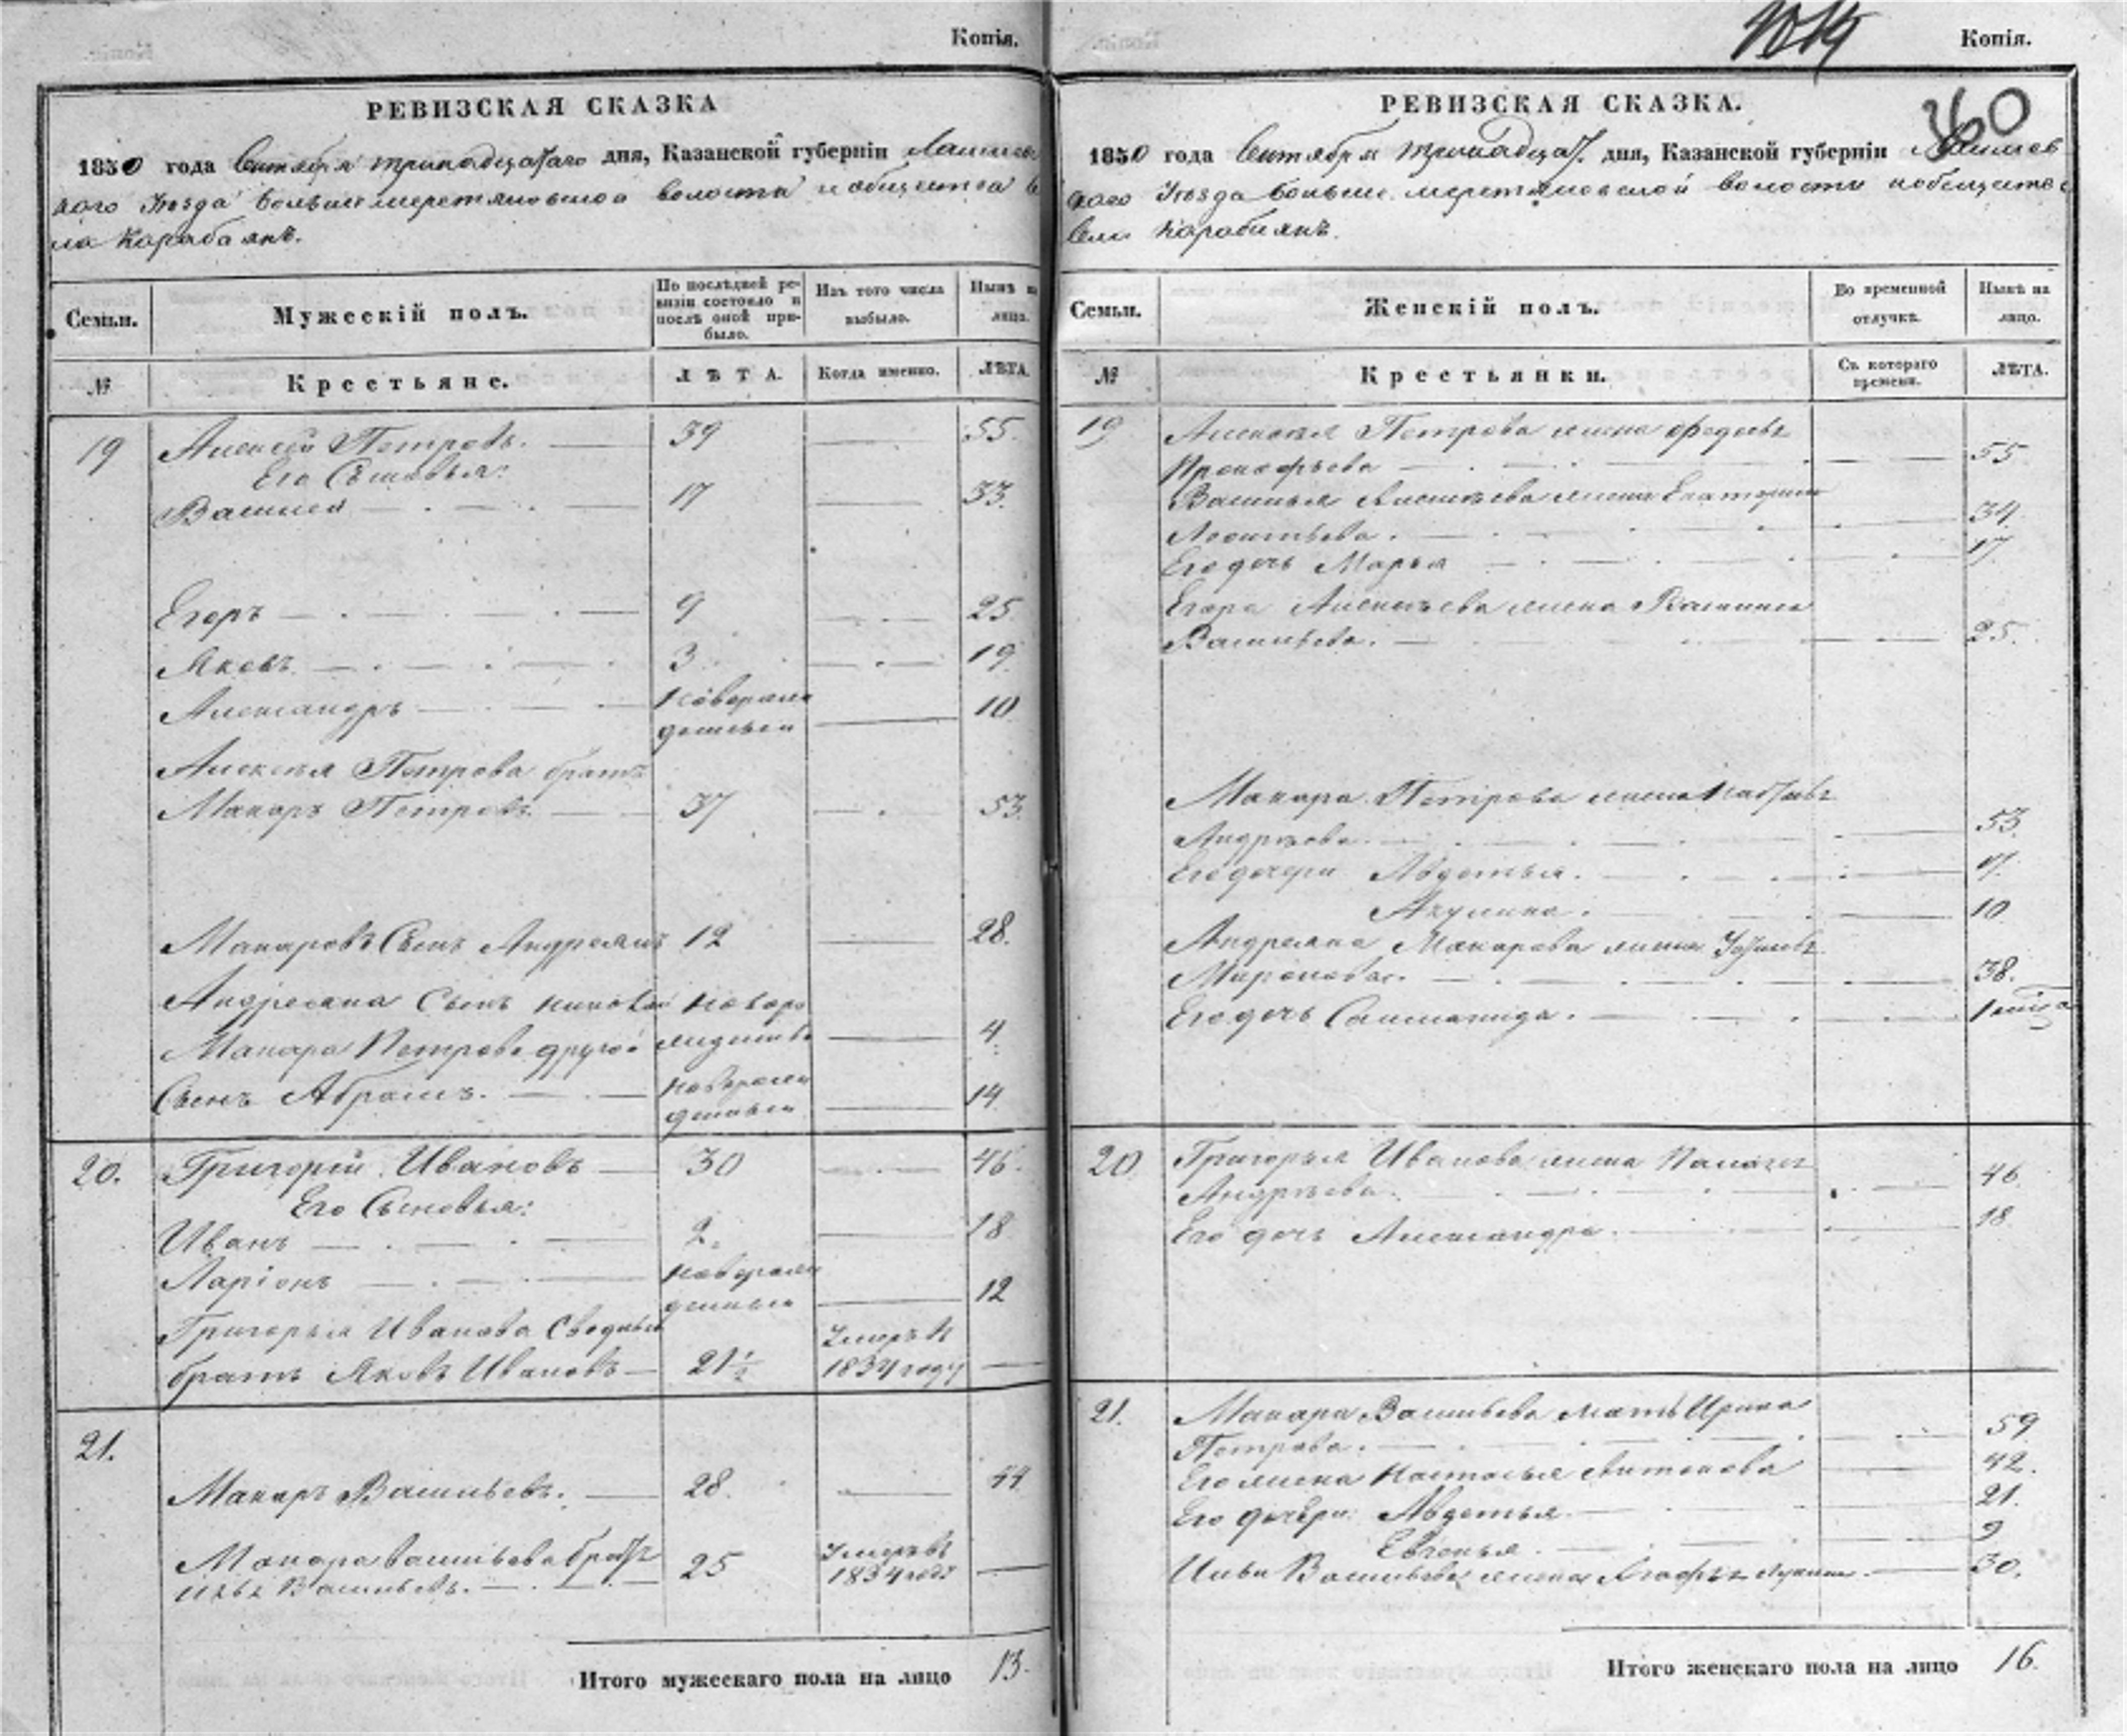 Копія.
РЕВИЗСКАЯ СКАЗКА
1850 года Сентября тринадцатаго дня, Казанской губерніи Лаишев
каго Уѣзда Больше меретяковской волости и общества Се
ла Карабаянъ.
Семьи.
Мужескій полъ.
По послѣдней ре-
визіи состояло и
послѣ оной при-
было.
Изъ того числа
выбыло.
Нынѣ на
лицо.
№
Крестьяне.
ЛѢТА.
Когда именно.
ЛѢТА.
19 Алексей Петровъ. 39 55.
Его Сыновья:
Василей 17 33.
Егоръ 9 25
Яковъ 3 19
Александръ новорож
денный 10
Алексѣя Петрова братъ
Макаръ Петровъ 37 53.
Макаровъ Сынъ Андреянъ 12 28.
Андреяна Сынъ новоро
Макара Петрова другой жденный 4
Сынъ Абрамъ. новорож
денный 14
20. Григорій Ивановъ 30 46.
Его Сыновья:
Иванъ 2. 18
Ларіонъ новорож
денный 12
Григорья Иванова Сводный Умеръ в
братъ Яковъ Ивановъ 21½ 1834 году
21.
Макаръ Васильевъ. 28. 44
Макара Васильева братъ Умеръ въ
Васильевъ. 25 1834 годѣ
Итого мужескаго пола на лицо 13.
Копія.
360
РЕВИЗСКАЯ СКАЗКА.
1850 года Сентября тринадцат. дня, Казанской губерніи Лаишев
скаго Уѣзда Больше меретяковской волости и общества
Села Карабаянъ.
Семьи.
Женскій полъ.
Во временной
отлучкѣ.
Нынѣ на
лицо.
№
Крестьянки.
Съ котораго
времени.
ЛѢТА.
19 Алексѣя Петрова жена Федосья
Прокофьева 55
Василья Алексѣева жена Екатерина
Леонтьева. 34
Его дочь Марья 17
Егора Алексѣева жена
Васильева. 25.
Макара Петрова жена
Андрѣева. 53.
Его дочери Авдотья. 17.
Акулина. 10
Андреяна Макарова жена
Миронова. 38.
Его дочь
20 Григорья Иванова жена
Андрѣева. 46
Его дочь Александра. 18
21. Макара Васильева мать Ирина
Петрова. 59
Его жена Настасья Антонова 42.
Его дочери: Авдотья 21.
Евгенья. 9
Васильева жена 30.
Итого женскаго пола на лицо 16.